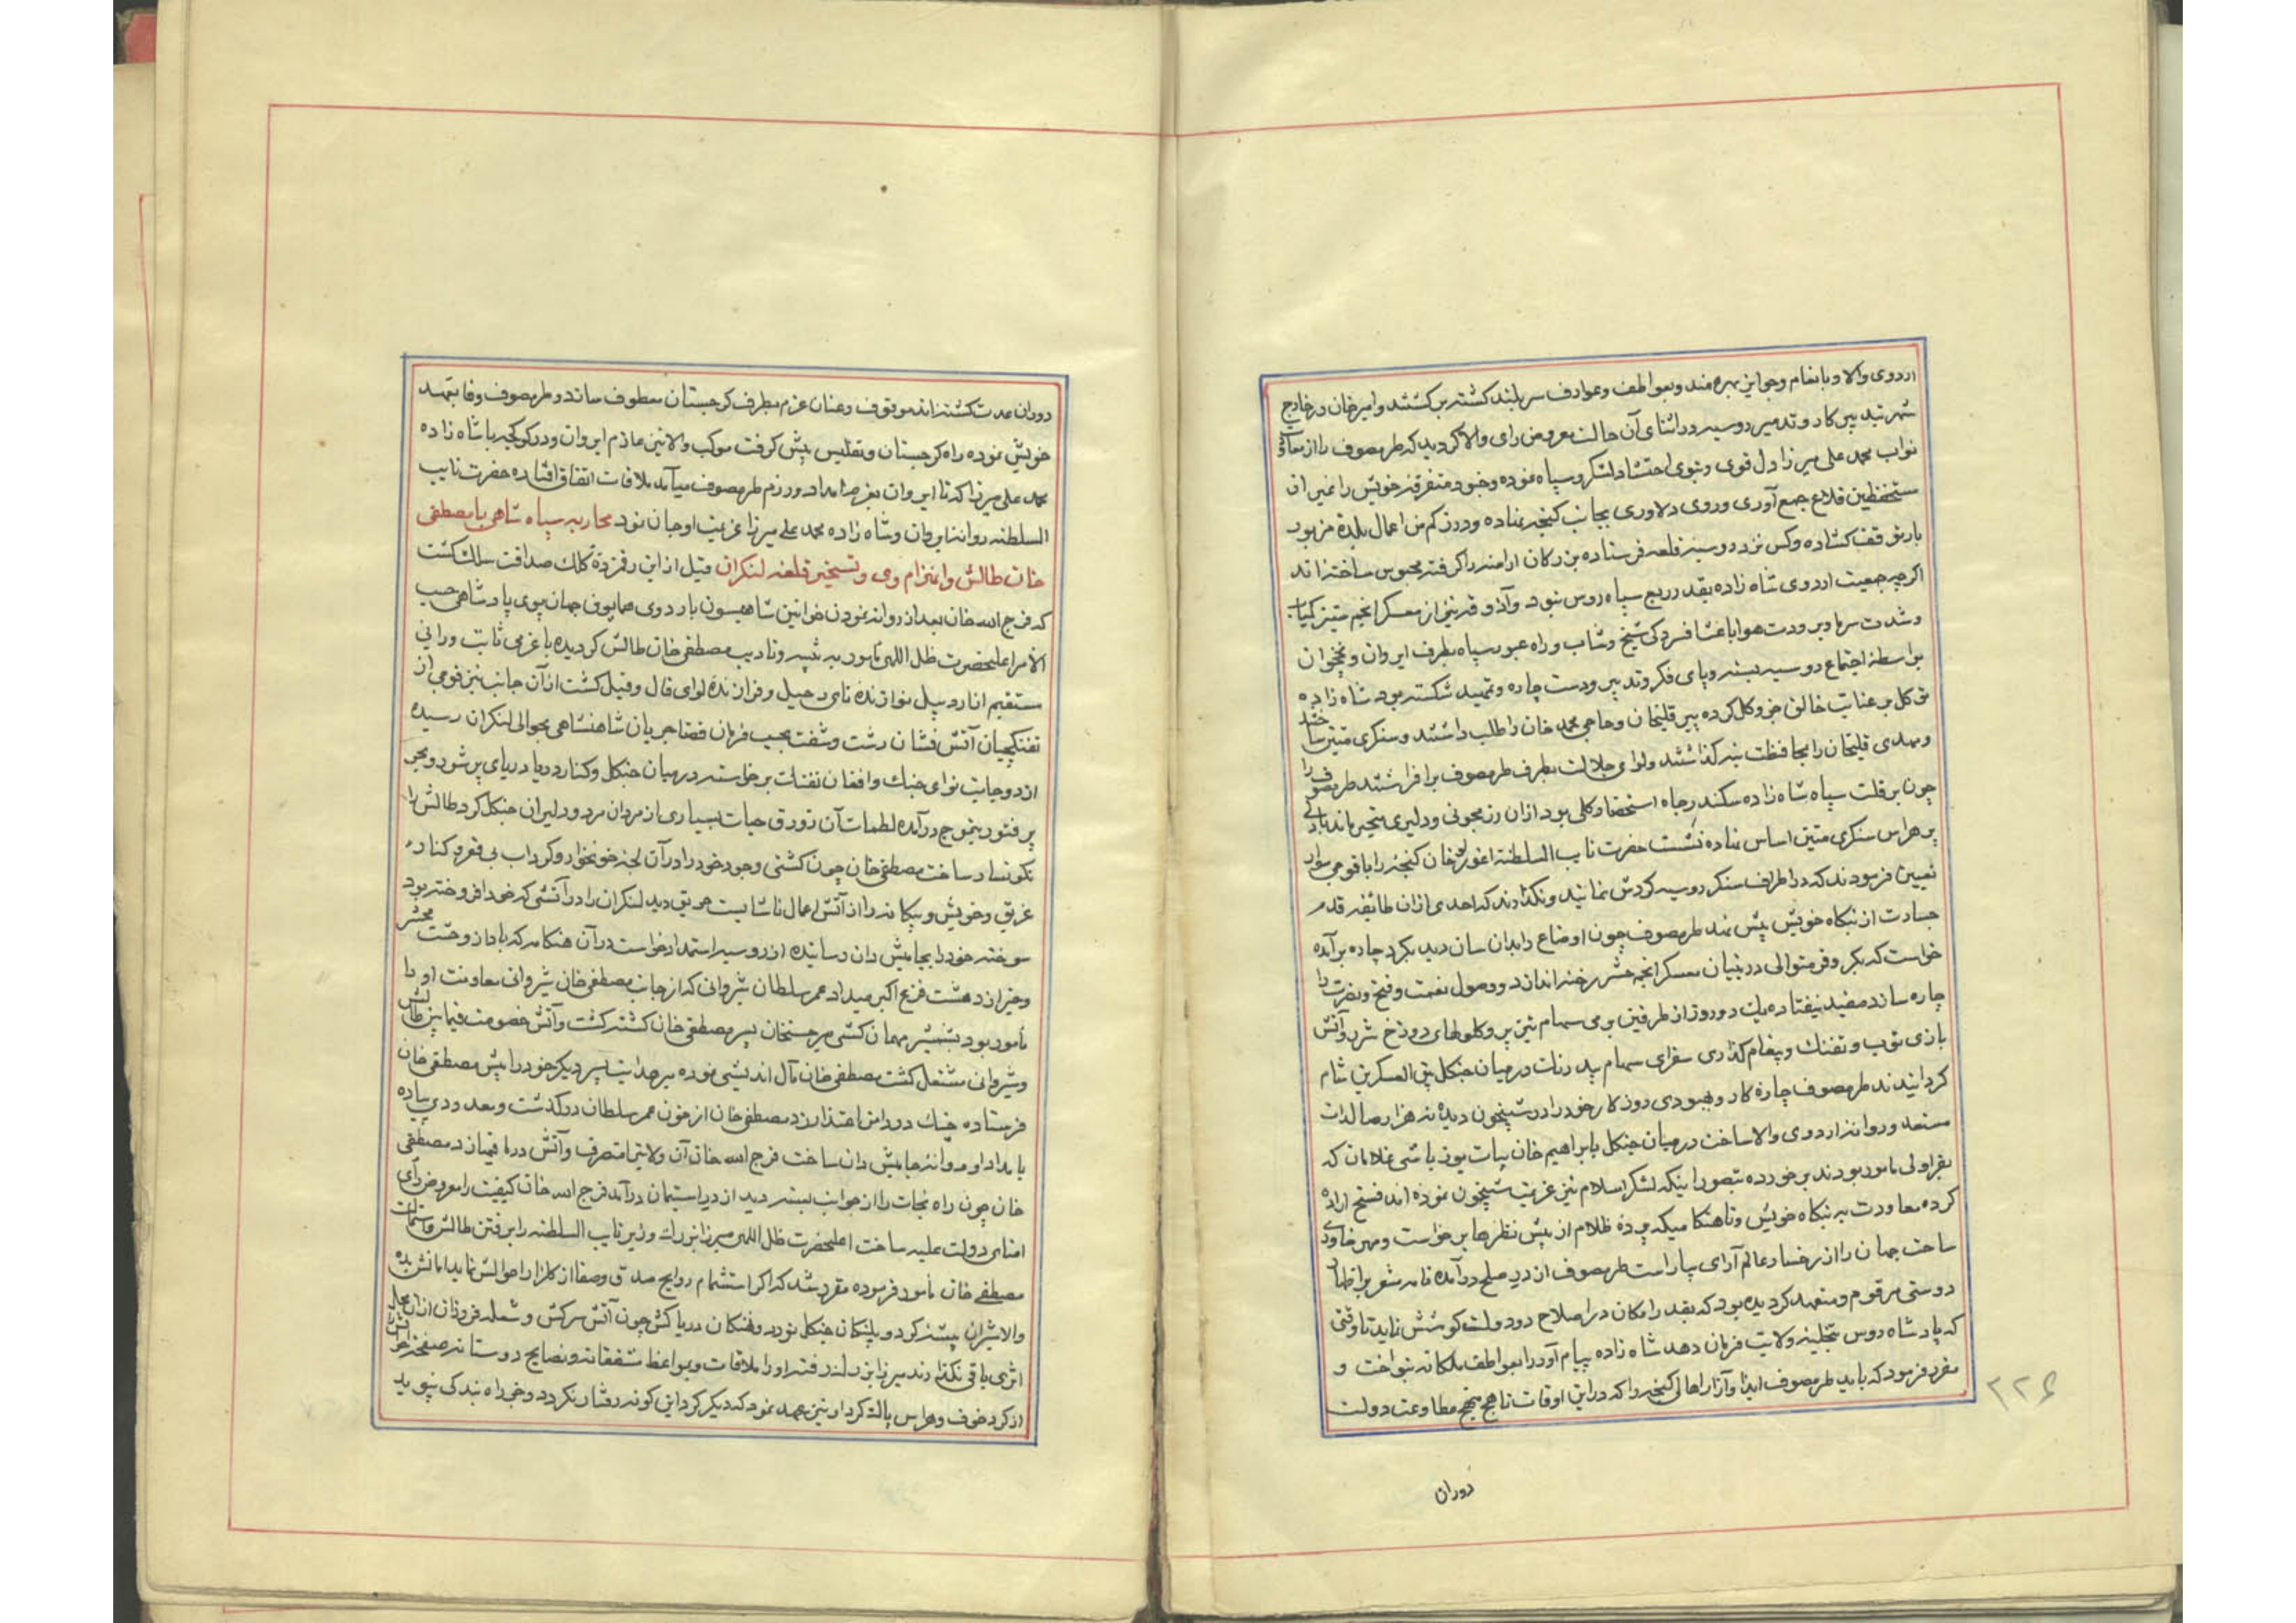 اردوی والا و بانعام و جوایز بهره مند و بعواطف و عوارف سربلند کشته بر کشتند و امیرخان در خارج
شهر تدبیر کار و تدمیر روسیه در اثنای آن حالت معروض رای والا کردید که طرمصوف را از معاونت
نواب محمد علی میرزا دل قوی و بنوی احتشاد لشکر و سپاه نموده و خود متفرقه خویش را غیر از
مستحفظین قلاع جمع آوری و روی دلاوری بجانب کنجه نهاده و در زکم من اعمال بلده مزبور
بار توقف کشاده و کس نزد روسیه قلعه فرستاده بزرکان ارامنه را کرفته محبوس ساخته اند
اکرچه جمعیت اردوی شاه زاده بقدر ربع سپاه روس نبود و آذوقه نیز از معسکر انجم
و شدت سرما و برودت هوا باعث افسردکی شیخ و شاب و راه عبور سپاه بطرف ایروان و نخجوان
بواسطه اجتماع روسیه بسته و پای فکر و تدبیر و دست چاره و تمهید شکسته بود شاه زاده
توکل بر عنایت خالق جزو کل کرده پیر قلیخان و حاجی محمد خان را طلب داشتند و سنکری متین ساخته
و مهدی قلیخان را بمحافظت بنه کذاشتند و لوای جلالت بطرف طرمصوف برافراشتند طرمصوف را
چون بر قلت سپاه شاه زاده سکندر جاه استحضار کلی بود از آن رزمجوئی و دلیری متحیر مانده با دلی
پر هراس سنکری متین اساس نهاده نشست حضرت نایب السلطنه اغورلو خان کنجه را با قومی سوار
تعیین فرمودند که در اطراف سنکر روسیه کردش نمایند و نکذارند که احدی از آن طائفه قدم
جسارت از بنکاه خویش پیش نهد طرمصوف چون اوضاع را بدان سان دید بکرد چاره بر آمده
خواست که بکر و فر متوالی در بنیان معسکر انجم حشر رخنه اندازد و وصول نعمت و فتح و نصرت را
چاره سازد مفید نیفتاده یک دو روز از طرفین برمی سهام تیز پر و کلولهای دوزخ شرر و آتش
بازی توپ و تفنک و پیغام کذاری سفرای سهام بید رنک در میان جنکل بین العسکرین شام
کردانیدند طرمصوف چاره کار و بهبودی روزکار خود را در شبیخون دیده نه هزار صالدات
مستعد و روانه اردوی والا ساخت در میان جنکل با ابراهیم خان بیات یوزباشی غلامان که
بقراولی مامور بودند برخورده بتصور اینکه لشکر اسلام نیز عزیمت شبیخون نموده اند فسخ اراده
کرده معاودت به بنکاه خویش و تا هنکامیکه پرده ظلام از پیش نظرها برخواست و مهر خاوری
ساحت جهان را از رخسار عالم آرای بیاراست طرمصوف از در صلح در آمده نامه مشعر بر اظهار
دوستی مرقوم و متعهد کردیده بود که بقدر امکان در اصلاح دو دولت کوشش نماید تا وقتی
که پادشاه روس بتخلیه ولایت فرمان دهد شاه زاده پیام آور را بعواطف ملکانه بنواخت و
مقرر فرمود که باید طرمصوف ایذا و آزار اهالی کنجه را که در این اوقات ناهج منهج مطاوعت دولت
۲۲۶
دوران
دوران عدت کشته اند موقوف و عنان عزم بطرف کرجستان معطوف سازد و طرمصوف وفا بتعهد
خویش نموده راه کرجستان و تفلیس پیش کرفت موکب والا نیز عازم ایروان و در کوکجه با شاه زاده
محمد علی میرزا که تا ایروان بعزم امداد و رزم طرمصوف میآمد ملاقات اتفاق افتاده حضرت نایب
السلطنه روانه ایروان و شاه زاده محمد علی میرزا عزیمت اوجان نمود محاربه سپاه شاهی با مصطفی
خان طالش و انهزام وی و تسخیر قلعه لنکران قبل از این رقمزده کلک صداقت سلک کشت
که فرج الله خان بعد از روانه نمودن خوانین شاهیسون باردوی همایون جهان پوی پادشاهی حسب
الامر اعلیحضرت ظل اللهی مامور به تنبیه و تادیب مصطفی خان طالش کردیده با عزمی ثابت و رائی
مستقیم از اردبیل نوازنده نای رحیل و فرازنده لوای قال و قیل کشت از آن جانب نیز قومی از
تفنکچیان آتش فشان رشت و شفت بحسب فرمان قضا جریان شاهنشاهی بحوالی لنکران رسیده
از دو جانب نوای جنک و افغان تفنک برخواسته در میان جنکل و کنار دریا دریای پر شور و بحر
پر فتور بتموج در آمده لطمات آن زورق حیات بسیاری از مردان مرد و دلیران جنکل کرد طالش را
نکونسار ساخت مصطفی خان چون کشتی وجود خود را در آن لجه خونخوار و کرداب بی قعر و کناره
غریق و خویش و بیکانه را از آتش اعمال ناشایست حریق دید لنکران را در آتشی که خود افروخته بود
سوخته خود را بجامیش دان رسانیده از روسیه استمداد خواست در آن هنکامه که یاد از وحشت محشر
و خبر از دهشت فزع اکبر میداد عمر سلطان شیروانی که از جانب مصطفی خان شیروانی معاونت او را
مأمور بود بشمشیر مهمان کشی میر حسنخان پسر مصطفی خان کشته کشت و آتش خصومت فیما بین طالش
و شیروانی مشتعل کشت مصطفی خان مآل اندیشی نموده میر هدایت پسر دیکر خود را پیش مصطفی خان
فرستاده چنک در دامن اعتذار زد مصطفی خان از خون عمر سلطان در کذشت و معدودی پیاده
با مداد او روانه جامیش دان ساخت فرج الله خان آن ولایت را متصرف و آتش در ما فیها زد مصطفی
خان چون راه نجات را از جوانب بسته دید از در استیمان در آمد فرج الله خان کیفیت را معروض رای
امنای دولت علیه ساخت اعلیحضرت ظل اللهی میرزا بزرک وزیر نایب السلطنه را برفتن طالش و استمالت
مصطفی خان مأمور فرموده مقرر شد که اکر استشمام روایح صدق و صفا از کلزار احوالش نماید امانش بده
والا شیران بیشه کرد و پلنکان جنکل نورد و نهنکان دریا کش چون آتش سرکش و شعله فروزان از آن محل
اثری باقی نکذارند میرزا بزرک رفته او را ملاقات و بمواعظ مشفقانه و نصایح دوستانه صفحه خاطرش را
از کرد خوف و هراس پاک کرد او نیز عهد نمود که دیکر کرد این کونه رفتار نکردد و جز راه بندکی نپوید